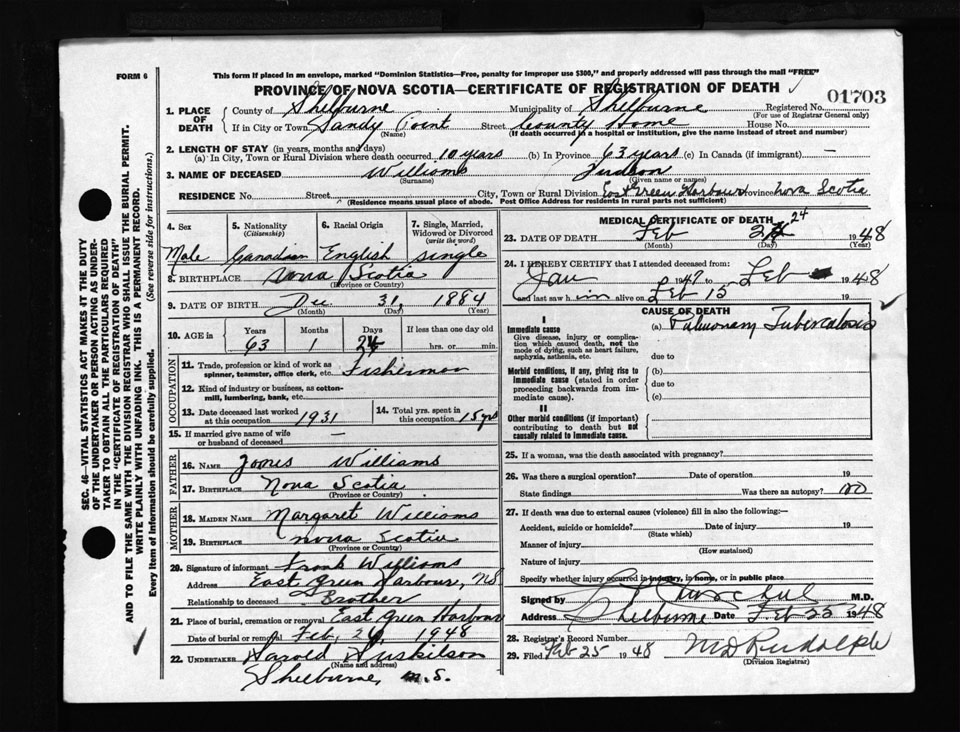 FORM 6
This form if placed in an envelope, marked "Dominion Statistics—Free, penalty for improper use $300," and properly addressed will pass through the mail "FREE"
PROVINCE OF NOVA SCOTIA—CERTIFICATE OF REGISTRATION OF DEATH
01703
1. PLACE OF DEATH
County of Shelburne Municipality of Shelburne Registered No.
(For use of Registrar General only)
If in City or Town Sandy Point Street County Home House No.
(Name) (If death occurred in a hospital or institution, give the name instead of street and number)
2. LENGTH OF STAY (in years, months and days)
(a) In City, Town or Rural Division where death occurred 10 years (b) In Province 63 years (c) In Canada (if immigrant) —
3. NAME OF DECEASED Williams Judson
(Surname) (Given name or names)
RESIDENCE No. Street City, Town or Rural Division East Green Harbour Province Nova Scotia
(Residence means usual place of abode. Post Office Address for residents in rural parts not sufficient)
4. Sex Male
5. Nationality (Citizenship) Canadian
6. Racial Origin English
7. Single, Married, Widowed or Divorced (write the word) single
8. BIRTHPLACE Nova Scotia
(Province or Country)
9. DATE OF BIRTH Dec 31 1884
(Month) (Day) (Year)
10. AGE in Years Months Days If less than one day old
63 1 24 hrs. or min.
OCCUPATION
11. Trade, profession or kind of work as spinner, teamster, office clerk, etc. Fisherman
12. Kind of industry or business, as cotton-mill, lumbering, bank, etc.
13. Date deceased last worked at this occupation 1931
14. Total yrs. spent in this occupation 15 yrs
15. If married give name of wife or husband of deceased —
FATHER
16. NAME Jones Williams
17. BIRTHPLACE Nova Scotia
(Province or Country)
MOTHER
18. MAIDEN NAME Margaret Williams
19. BIRTHPLACE Nova Scotia
(Province or Country)
20. Signature of informant Frank Williams
Address East Green Harbour, NS
Relationship to deceased Brother
21. Place of burial, cremation or removal East Green Harbour
Date of burial or removal Feb, 26, 1948
22. UNDERTAKER Harold Huskilson
(Name and address)
Shelburne, N.S.
MEDICAL CERTIFICATE OF DEATH
23. DATE OF DEATH Feb 24 1948
(Month) (Day) (Year)
24. I HEREBY CERTIFY that I attended deceased from:
Jan 1947 to Feb 1948
and last saw him alive on Feb 15 19
CAUSE OF DEATH
I
Immediate cause (a) Pulmonary Tuberculosis
Give disease, injury or complication which caused death, not the mode of dying, such as heart failure, asphyxia, asthenia, etc.
due to
Morbid conditions, if any, giving rise to immediate cause (stated in order proceeding backwards from immediate cause).
(b)
due to
(c)
II
Other morbid conditions (if important) contributing to death but not causally related to immediate cause.
25. If a woman, was the death associated with pregnancy?
26. Was there a surgical operation? Date of operation 19
State findings Was there autopsy? no
27. If death was due to external causes (violence) fill in also the following:—
Accident, suicide or homicide? Date of injury 19
(State which)
Manner of injury
(How sustained)
Nature of injury
Specify whether injury occurred in industry, in home, or in public place
Signed by M.D.
Address Shelburne Date Feb 25 1948
28. Registrar's Record Number
29. Filed Feb 25 1948 M D Rudolph
(Division Registrar)
SEC. 46—VITAL STATISTICS ACT MAKES IT THE DUTY
OF THE UNDERTAKER OR PERSON ACTING AS UNDER-
TAKER TO OBTAIN ALL THE PARTICULARS REQUIRED
IN THE "CERTIFICATE OF REGISTRATION OF DEATH"
AND TO FILE THE SAME WITH THE DIVISION REGISTRAR WHO SHALL ISSUE THE BURIAL PERMIT.
WRITE PLAINLY WITH UNFADING INK. THIS IS A PERMANENT RECORD.
Every item of Information should be carefully supplied. (See reverse side for instructions.)